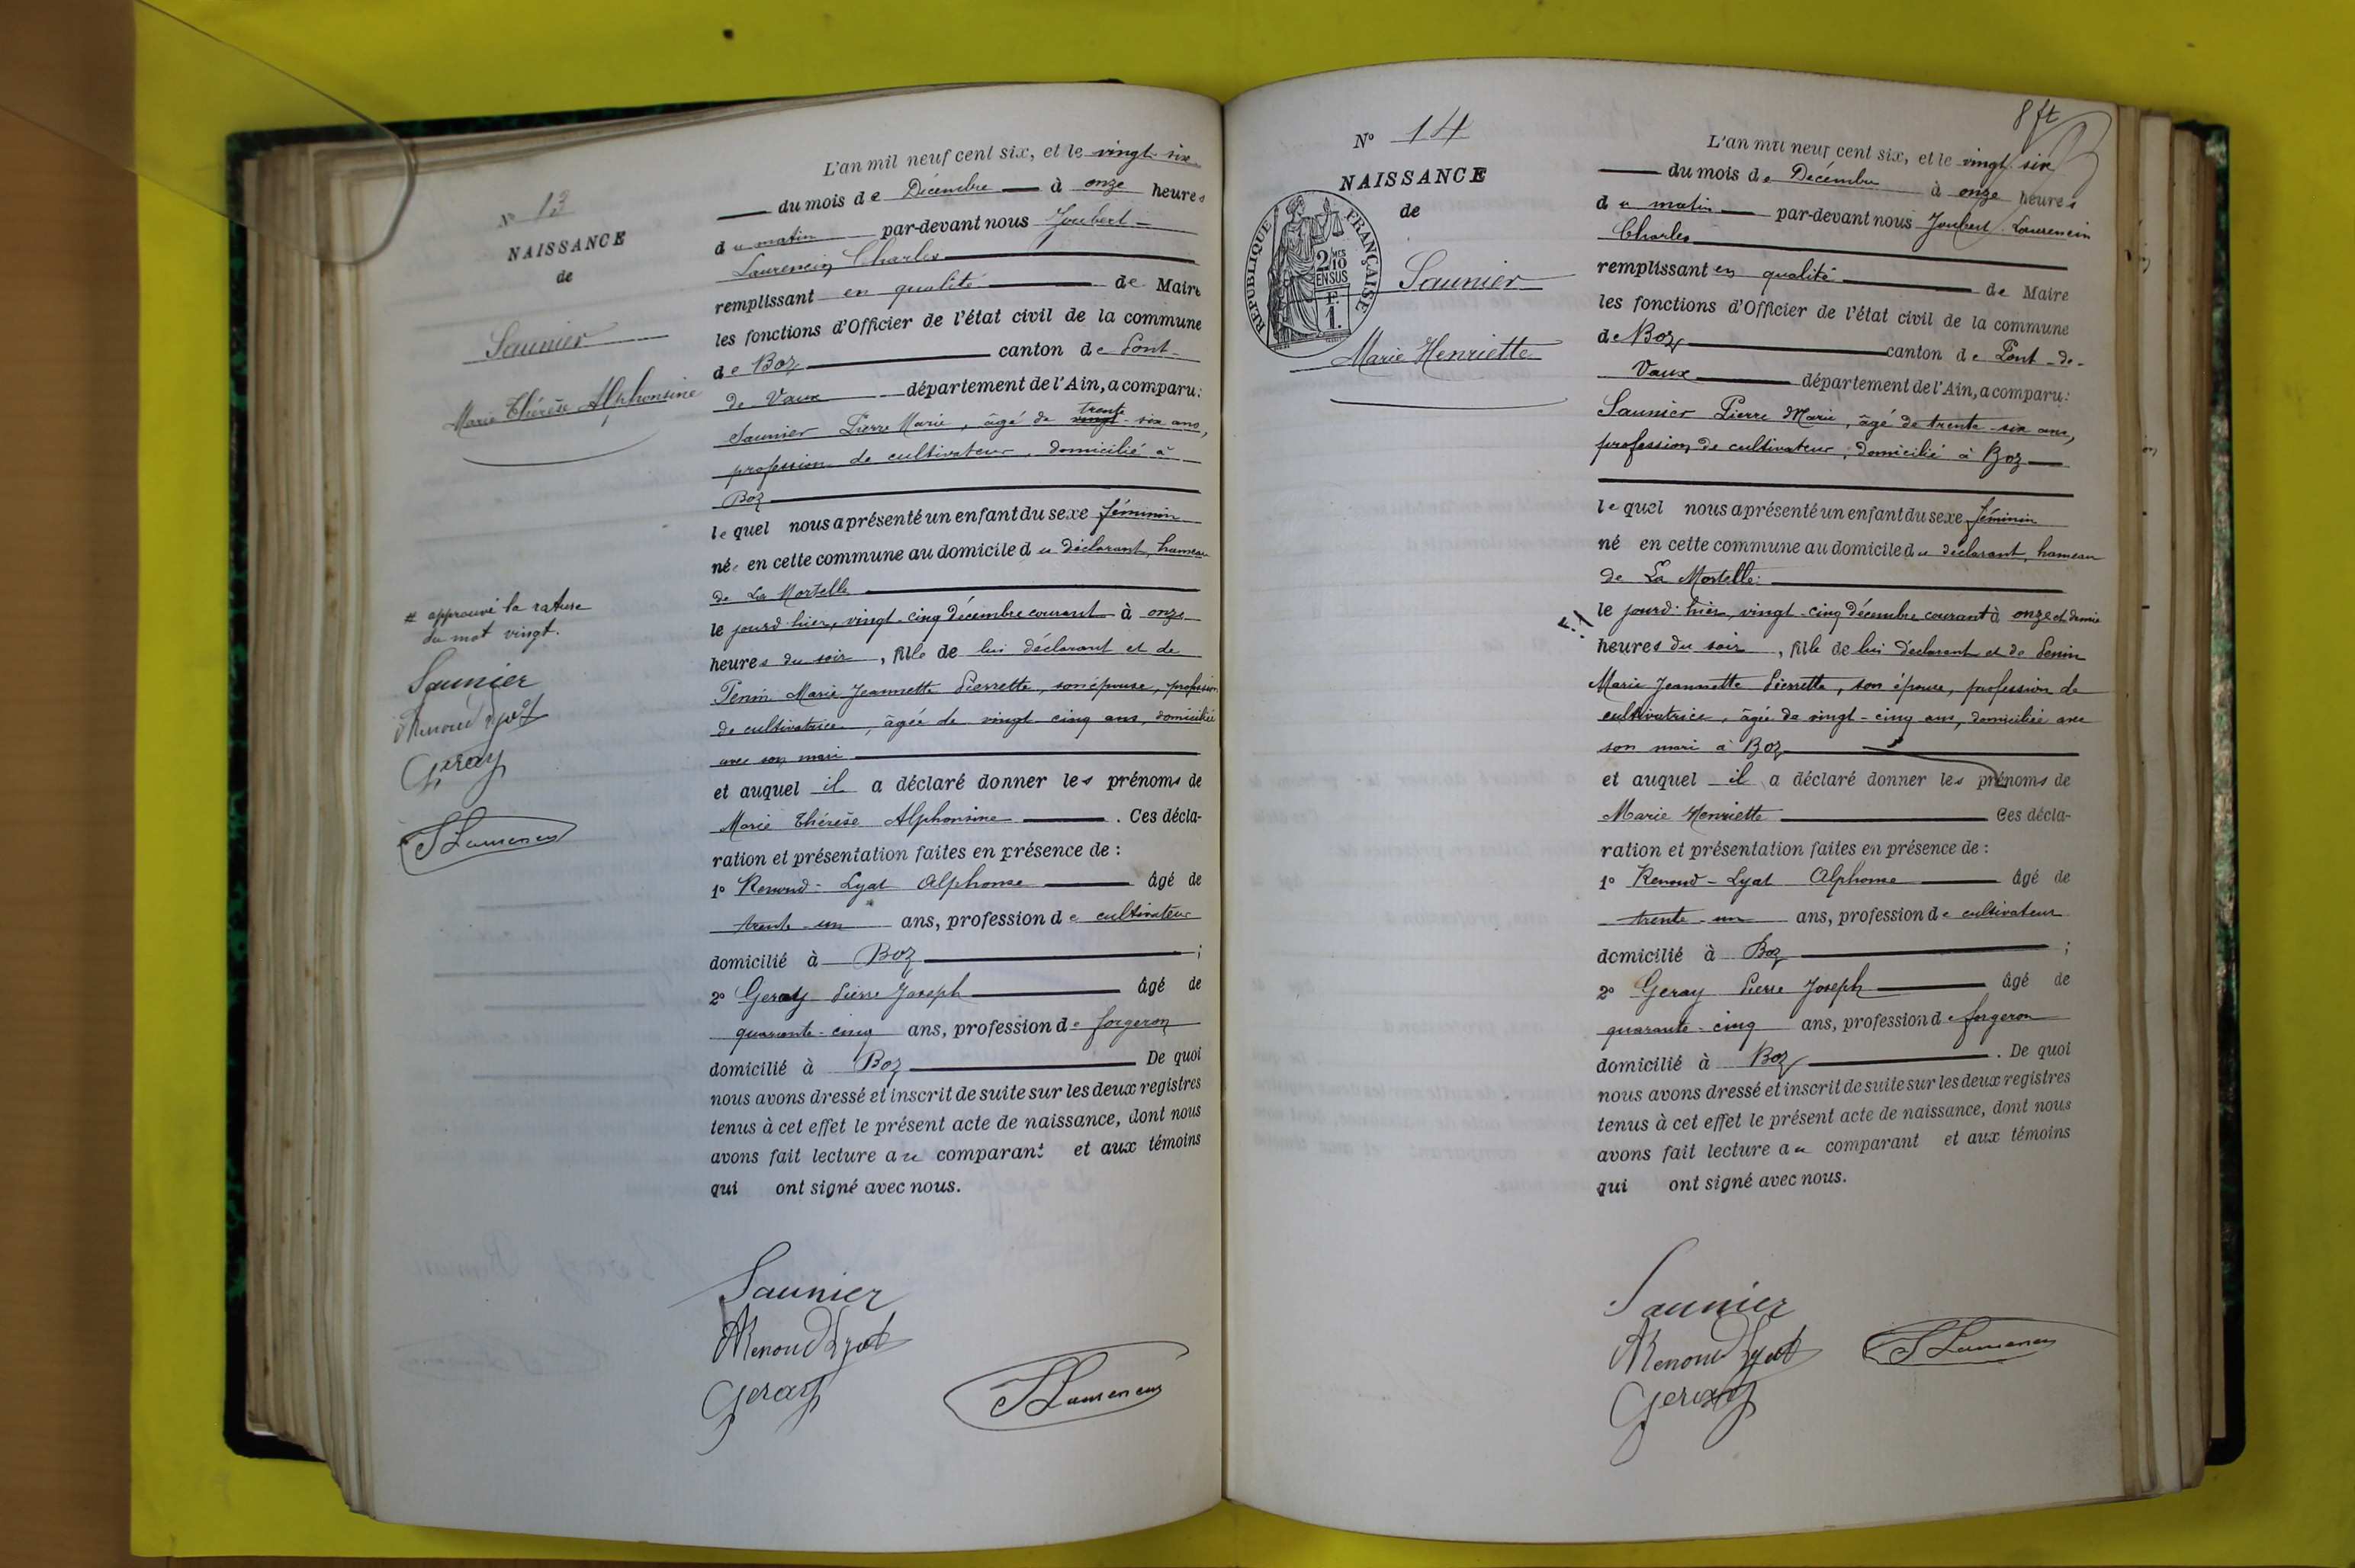 N° 13
NAISSANCE
de
Saunier
Marie Thérèse Alphonsine
# approuvé la rature
du mot vingt.
Saunier
ARenoud Lyat
Geray
L'an mil neuf cent six, et le vingt-six
du mois de Décembre à onze heures
du matin par-devant nous Joubert-
Laurencin Charles
remplissant en qualité de Maire
les fonctions d'Officier de l'état civil de la commune
de Boz canton de Pont-
de-Vaux département de l'Ain, a comparu:
trente
Saunier Pierre Marie, âgé de vingt-six ans,
profession de cultivateur, domicilié à
Boz
lequel nous a présenté un enfant du sexe féminin
née en cette commune au domicile du déclarant, hameau
de La Mortelle
le jourd'hier, vingt-cinq décembre courant à onze
heures du soir, fille de lui déclarant et de
Penin Marie Jeannette Pierrette, son épouse, profession
de cultivatrice, âgée de vingt-cinq ans, domiciliée
avec son mari
et auquel il a déclaré donner les prénoms de
Marie Thérèse Alphonsine. Ces décla-
ration et présentation faites en présence de :
1° Renoud-Lyat Alphonse âgé de
trente-un ans, profession de cultivateur
domicilié à Boz ;
2° Geray Pierre Joseph âgé de
quarante-cinq ans, profession de forgeron
domicilié à Boz De quoi
nous avons dressé et inscrit de suite sur les deux registres
tenus à cet effet le présent acte de naissance, dont nous
avons fait lecture au comparant et aux témoins
qui ont signé avec nous.
Saunier
ARenoud Lyat
Geray
JLaurencin
8 ft
N° 14
NAISSANCE
de
RÉPUBLIQUE FRANÇAISE
2/10 MES
EN SUS
F.
1.
Saunier
Marie Henriette
L'an mil neuf cent six, et le vingt-six
du mois de Décembre à onze heures
du matin par-devant nous Joubert-Laurencin
Charles
remplissant en qualité de Maire
les fonctions d'Officier de l'état civil de la commune
de Boz canton de Pont-de-
Vaux département de l'Ain, a comparu:
Saunier Pierre Marie, âgé de trente-six ans,
profession de cultivateur, domicilié à Boz
lequel nous a présenté un enfant du sexe féminin
né en cette commune au domicile du déclarant, hameau
de La Mortelle.
le jourd'hier, vingt-cinq décembre courant à onze et demie
heures du soir, fille de lui déclarant et de Penin
Marie Jeannette Pierrette, son épouse, profession de
cultivatrice, âgée de vingt-cinq ans, domiciliée avec
son mari à Boz
et auquel il a déclaré donner les prénoms de
Marie Henriette Ces décla-
ration et présentation faites en présence de :
1° Renoud-Lyat Alphonse âgé de
trente-un ans, profession de cultivateur
domicilié à Boz ;
2° Geray Pierre Joseph âgé de
quarante-cinq ans, profession de forgeron
domicilié à Boz. De quoi
nous avons dressé et inscrit de suite sur les deux registres
tenus à cet effet le présent acte de naissance, dont nous
avons fait lecture au comparant et aux témoins
qui ont signé avec nous.
Saunier
ARenoud Lyat
Geray
JLaurencin